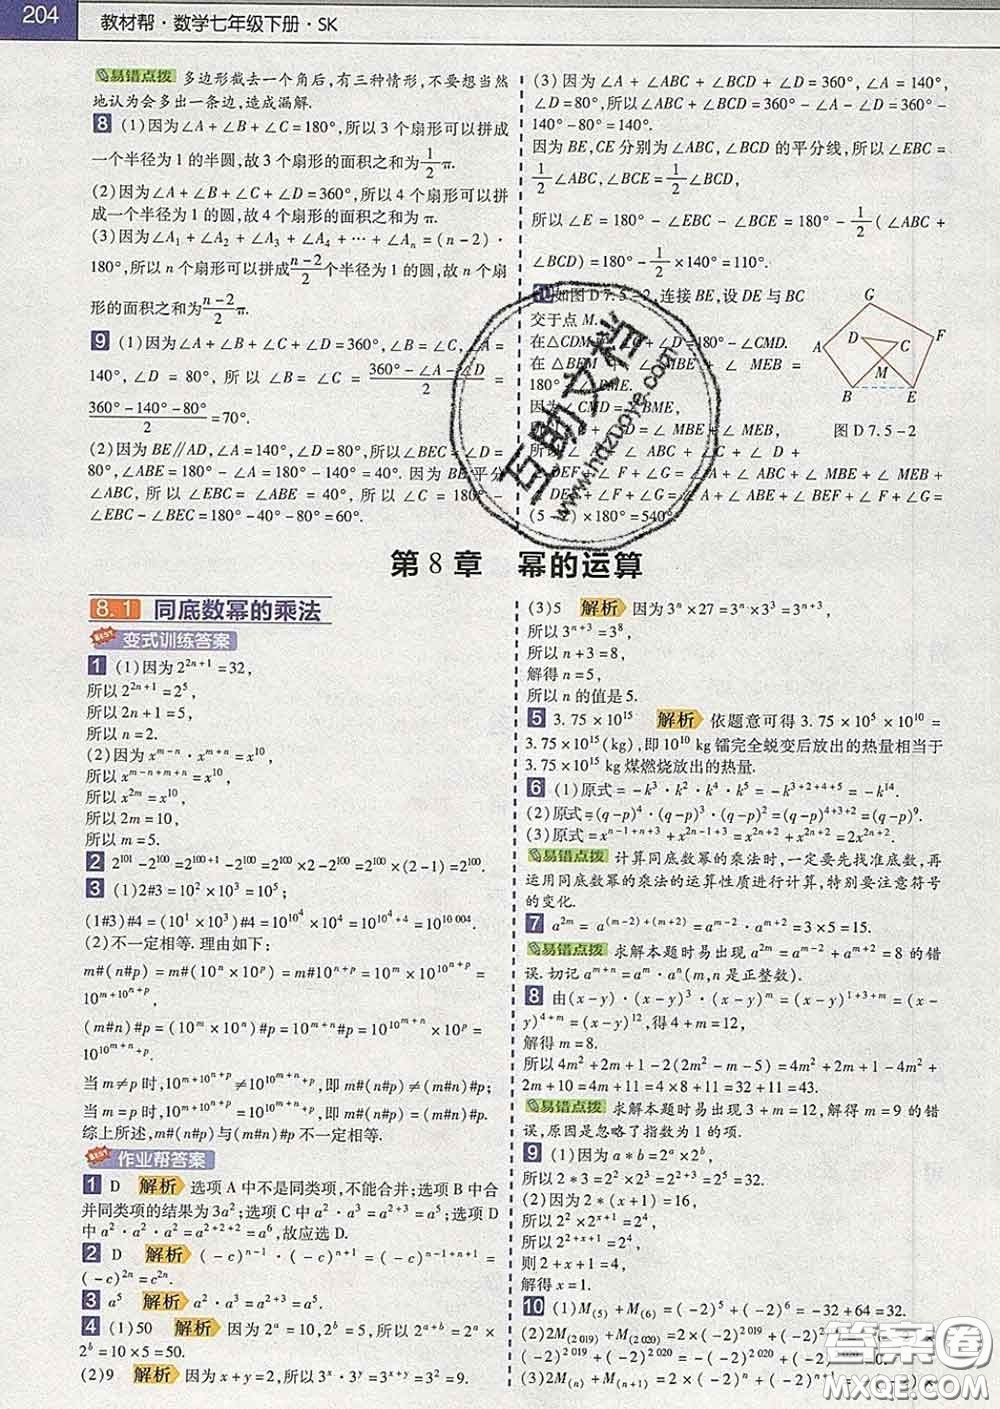 204 教材帮·数学七年级下册·SK
易错点拨 多边形截去一个角后,有三种情形,不要想当然
地认为会多出一条边,造成漏解.
8 (1)因为∠A+∠B+∠C=180°,所以3个扇形可以拼成
一个半径为1的半圆,故3个扇形的面积之和为1/2π.
(2)因为∠A+∠B+∠C+∠D=360°,所以4个扇形可以拼
成一个半径为1的圆,故4个扇形的面积之和为π.
(3)因为∠A₁+∠A₂+∠A₃+∠A₄+…+∠Aₙ=(n-2)·
180°,所以n个扇形可以拼成(n-2)/2个半径为1的圆,故n个扇
形的面积之和为(n-2)/2π.
9 (1)因为∠A+∠B+∠C+∠D=360°,∠B=∠C,∠A=
140°,∠D=80°,所以∠B=∠C=(360°-∠A-∠D)/2=
(360°-140°-80°)/2=70°.
(2)因为BE∥AD,∠A=140°,∠D=
80°,∠ABE=180°-∠A=180°-140°=40°.因为BE平分
∠ABC,所以∠EBC=∠ABE=40°,所以∠C=180°-
∠EBC-∠BEC=180°-40°-80°=60°.
(3)因为∠A+∠ABC+∠BCD+∠D=360°,∠A=140°,
∠D=80°,所以∠ABC+∠BCD=360°-∠A-∠D=360°-
140°-80°=140°.
因为BE,CE分别为∠ABC,∠BCD的平分线,所以∠EBC=
1/2∠ABC,∠BCE=1/2∠BCD,
所以∠E=180°-∠EBC-∠BCE=180°-1/2(∠ABC+
∠BCD)=180°-1/2×140°=110°.
10 如图D7.5-2,连接BE,设DE与BC
交于点M.
在△CDM中,∠C+∠D=180°-∠CMD.
在△BEM中,∠MBE+∠MEB=
180°-∠BME.
因为∠CMD=∠BME,
所以∠C+∠D=∠MBE+∠MEB,
所以∠A+∠ABC+∠C+∠D+
∠DEF+∠F+∠G=∠A+∠ABC+∠MBE+∠MEB+
∠DEF+∠F+∠G=∠A+∠ABE+∠BEF+∠F+∠G=
(5-2)×180°=540°.
G
A D C F
M
B E
图D7.5-2
第8章 幂的运算
8.1 同底数幂的乘法
变式训练答案
1 (1)因为2^{2n+1}=32,
所以2^{2n+1}=2^5,
所以2n+1=5,
所以n=2.
(2)因为x^{m-n}·x^{m+n}=x^{10},
所以x^{m-n+m+n}=x^{10},
所以x^{2m}=x^{10},
所以2m=10,
所以m=5.
2 2^{101}-2^{100}=2^{100+1}-2^{100}=2^{100}×2-2^{100}=2^{100}×(2-1)=2^{100}.
3 (1)2#3=10²×10³=10^5;
(1#3)#4=(10^1×10^3)#4=10^{10^4}×10^4=10^{10^4+4}=10^{10 004}.
(2)不一定相等.理由如下:
m#(n#p)=m#(10^n×10^p)=m#10^{n+p}=10^m×10^{10^{n+p}}=
10^{m+10^{n+p}},
(m#n)#p=(10^m×10^n)#p=10^{m+n}#p=10^{10^{m+n}}×10^p=
10^{10^{m+n}+p}.
当m≠p时,10^{m+10^{n+p}}≠10^{10^{m+n}+p},即m#(n#p)≠(m#n)#p;
当m=p时,10^{m+10^{n+p}}=10^{10^{m+n}+p},即m#(n#p)=(m#n)#p.
综上所述,m#(n#p)与(m#n)#p不一定相等.
作业帮答案
1 D 解析 选项A中不是同类项,不能合并;选项B中合
并同类项的结果为3a²;选项C中a²·a³=a^{2+3}=a^5;选项D
中a²·a²·a²=a^{2+2+2}=a^6,故应选D.
2 D 解析 (-c)^{n-1}·(-c)^{n+1}=(-c)^{n-1+n+1}=
(-c)^{2n}=c^{2n}.
3 a^5 解析 a²·a³=a^{2+3}=a^5.
4 (1)50 解析 因为2^a=10,2^b=5,所以2^{a+b}=2^a×
2^b=10×5=50.
(2)9 解析 因为x+y=2,所以3^x·3^y=3^{x+y}=3²=9.
(3)5 解析 因为3^n×27=3^n×3³=3^{n+3},
所以3^{n+3}=3^8,
所以n+3=8,
解得n=5,
所以n的值是5.
5 3.75×10^{15} 解析 依题意可得3.75×10^5×10^{10}=
3.75×10^{15}(kg),即10^{10} kg镭完全蜕变后放出的热量相当于
3.75×10^{15} kg煤燃烧放出的热量.
6 (1)原式=-k³·k²·k^4·k^5=-k^{3+2+4+5}=-k^{14}.
(2)原式=(q-p)^4·(q-p)^3·(q-p)^2=(q-p)^{4+3+2}=(q-p)^9.
(3)原式=x^{n-1+n+3}+x^{2n-1+3}=x^{2n+2}+x^{2n+2}=2x^{2n+2}.
易错点拨 计算同底数幂的乘法时,一定要先找准底数,再
运用同底数幂的乘法的运算性质进行计算,特别要注意符号
的变化.
7 a^{2m}=a^{(m-2)+(m+2)}=a^{m-2}·a^{m+2}=3×5=15.
易错点拨 求解本题时易出现a^{2m}=a^{m-2}+a^{m+2}=8的错
误.切记a^{m+n}=a^m·a^n(m,n是正整数).
8 由(x-y)·(x-y)³·(x-y)^m=(x-y)^{1+3+m}=(x-
y)^{4+m}=(x-y)^{12},得4+m=12,
解得m=8.
所以4m²+2m+1-2(2m²-m-5)=4m²+2m+1-4m²+
2m+10=4m+11=4×8+11=32+11=43.
易错点拨 求解本题时易出现3+m=12,解得m=9的错
误,原因是忽略了指数为1的项.
9 (1)因为a*b=2^a×2^b,
所以2*3=2²×2³=2^{2+3}=2^5=32.
(2)因为2*(x+1)=16,
所以2²×2^{x+1}=2^4,
所以2^{2+x+1}=2^4,
则2+x+1=4,
解得x=1.
10 (1)M₍₅₎+M₍₆₎=(-2)^5+(-2)^6=-32+64=32.
(2)2M_{(2 019)}+M_{(2 020)}=2×(-2)^{2 019}+(-2)
(-2)=-(-2)^{2 020}+(-2)^{2 020}=0.
(3)2M_{(n)}+M_{(n+1)}=2×(-2)
互助文档
www.hdzuoye.com
答案圈
MXQE.COM